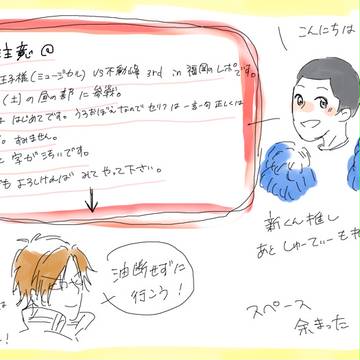 注意@
王子様(ミュージカル)VS不動峰 3rd in 福岡のレポです。
(土)の昼の部に参戦。
はじめてです。うろおぼえなのでセリフは一言一句正しくは
すみません。
字がきちゃいです。
でもよろしければ みてやって下さい。
こんにちは
新くん推し
あと しゅーてぃーも
油断せずに
行こう!
スペース
余まった